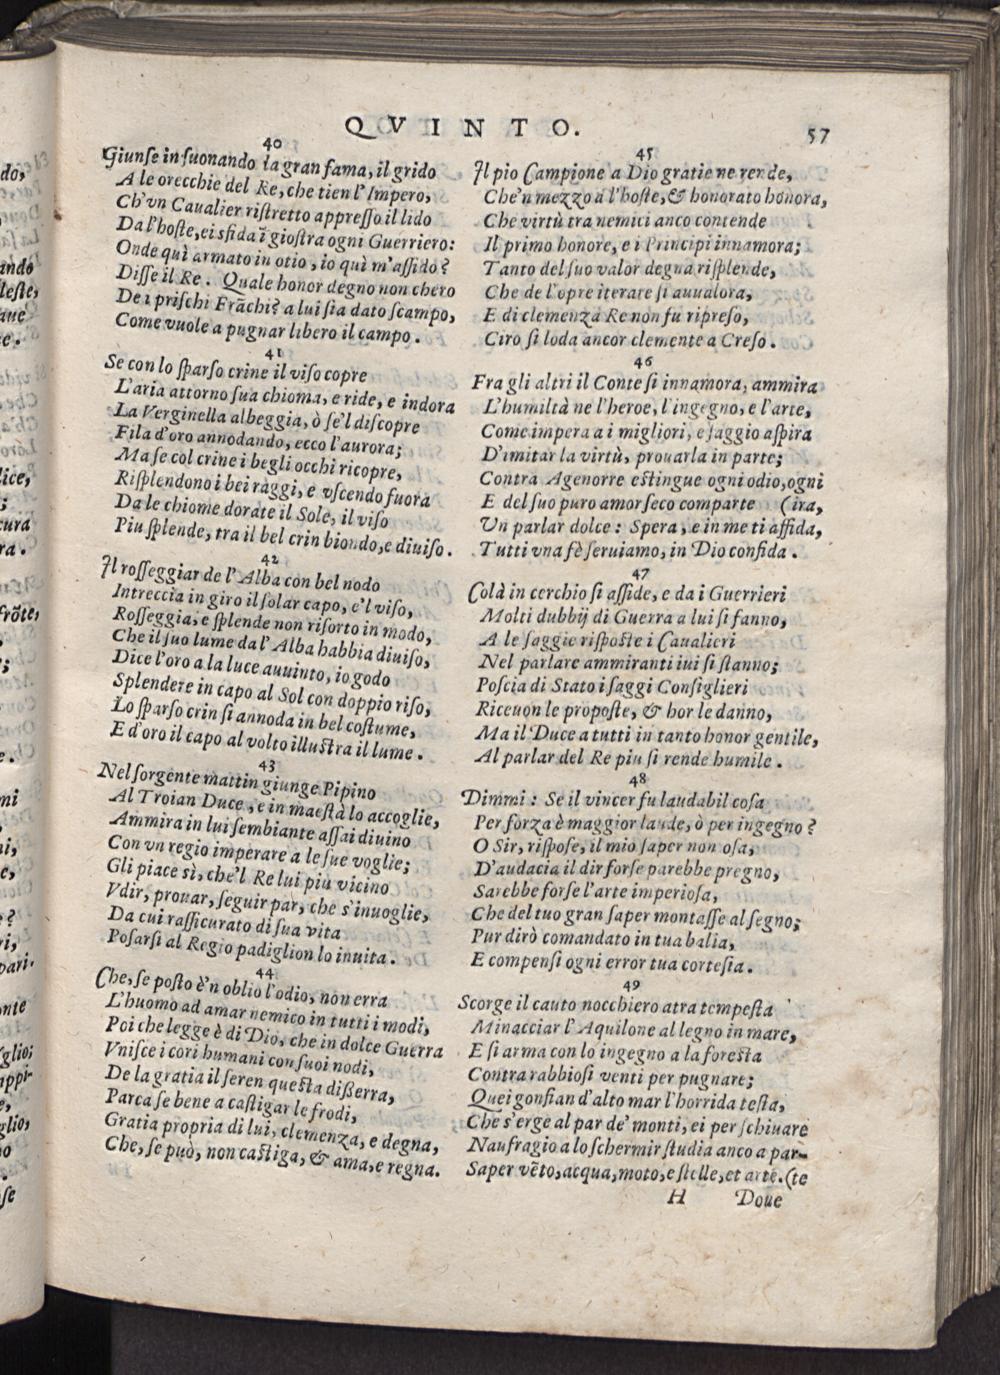 QVINTO.
57
40
Giunſe in ſuonando la gran fama, il grido
A le orecchie del Re, che tien l'Impero,
Ch'vn Caualier riſtretto appreſſo il lido
Da l'hoſte, ei sfida ī gioſtra ogni Guerriero:
Onde quì armato in otio, io quì m'aſſido?
Diſſe il Re. Quale honor degno non chero
De i priſchi Frāchi? a lui ſia dato ſcampo,
Come vuole a pugnar libero il campo.
41
Se con lo ſparſo crine il viſo copre
L'aria attorno ſua chioma, e ride, e indora
La Verginella albeggia, ò ſe'l diſcopre
Fila d'oro annodando, ecco l'aurora;
Ma ſe col crine i begli occhi ricopre,
Riſplendono i bei raggi, e vſcendo fuora
Da le chiome dorate il Sole, il viſo
Piu ſplende, tra il bel crin biondo, e diuiſo.
42
Il roſſeggiar de l'Alba con bel nodo
Intreccia in giro il ſolar capo, e'l viſo,
Roſſeggia, e ſplende non riſorto in modo,
Che il ſuo lume da l'Alba habbia diuiſo,
Dice l'oro a la luce auuinto, io godo
Splendere in capo al Sol con doppio riſo,
Lo ſparſo crin ſi annoda in bel coſtume,
E d'oro il capo al volto illuſtra il lume.
43
Nel ſorgente mattin giunge Pipino
Al Troian Duce, e in maeſtà lo accoglie,
Ammira in lui ſembiante aſſai diuino
Con vn regio imperare a le ſue voglie;
Gli piace sì, che'l Re lui piu vicino
Vdir, prouar, ſeguir par, che s'inuoglie,
Da cui raſſicurato di ſua vita
Poſarſi al Regio padiglion lo inuita.
44
Che, ſe poſto è'n oblio l'odio, non erra
L'huomo ad amar nemico in tutti i modi,
Poi che legge è di Dio, che in dolce Guerra
Vniſce i cori humani con ſuoi nodi,
De la gratia il ſeren queſta diſſerra,
Parca ſe bene a caſtigar le frodi,
Gratia propria di lui, clemenza, e degna,
Che, ſe può, non caſtiga, & ama, e regna.
45
Il pio Campione a Dio gratie ne rende,
Che'n mezzo a l'hoſte, & honorato honora,
Che virtù tra nemici anco contende
Il primo honore, e i Principi innamora;
Tanto del ſuo valor degna riſplende,
Che de l'opre iterare ſi auualora,
E di clemenza Re non fu ripreſo,
Ciro ſi loda ancor clemente a Creſo.
46
Fra gli altri il Conte ſi innamora, ammira
L'humiltà ne l'heroe, l'ingegno, e l'arte,
Come impera a i migliori, e ſaggio aſpira
D'imitar la virtù, prouarla in parte;
Contra Agenorre eſtingue ogni odio, ogni
E del ſuo puro amor ſeco comparte (ira,
Vn parlar dolce: Spera, e in me ti affida,
Tutti vna fè ſeruiamo, in Dio confida.
47
Colà in cerchio ſi aſſide, e da i Guerrieri
Molti dubbij di Guerra a lui ſi fanno,
A le ſaggie riſpoſte i Caualieri
Nel parlare ammiranti iui ſi ſtanno;
Poſcia di Stato i ſaggi Conſiglieri
Riceuon le propoſte, & hor le danno,
Ma il Duce a tutti in tanto honor gentile,
Al parlar del Re piu ſi rende humile.
48
Dimmi: Se il vincer fu laudabil coſa
Per forza è maggior laude, ò per ingegno?
O Sir, riſpoſe, il mio ſaper non oſa,
D'audacia il dir forſe parebbe pregno,
Sarebbe forſe l'arte imperioſa,
Che del tuo gran ſaper montaſſe al ſegno;
Pur dirò comandato in tua balia,
E compenſi ogni error tua corteſia.
49
Scorge il cauto nocchiero atra tempeſta
Minacciar l'Aquilone al legno in mare,
E ſi arma con lo ingegno a la foreſta
Contra rabbioſi venti per pugnare;
Quei gonfian d'alto mar l'horrida teſta,
Che s'erge al par de' monti, ei per ſchiuare
Naufragio a lo ſchermir ſtudia anco a par-
Saper vēto, acqua, moto, e ſtelle, et arte. (te
H Doue